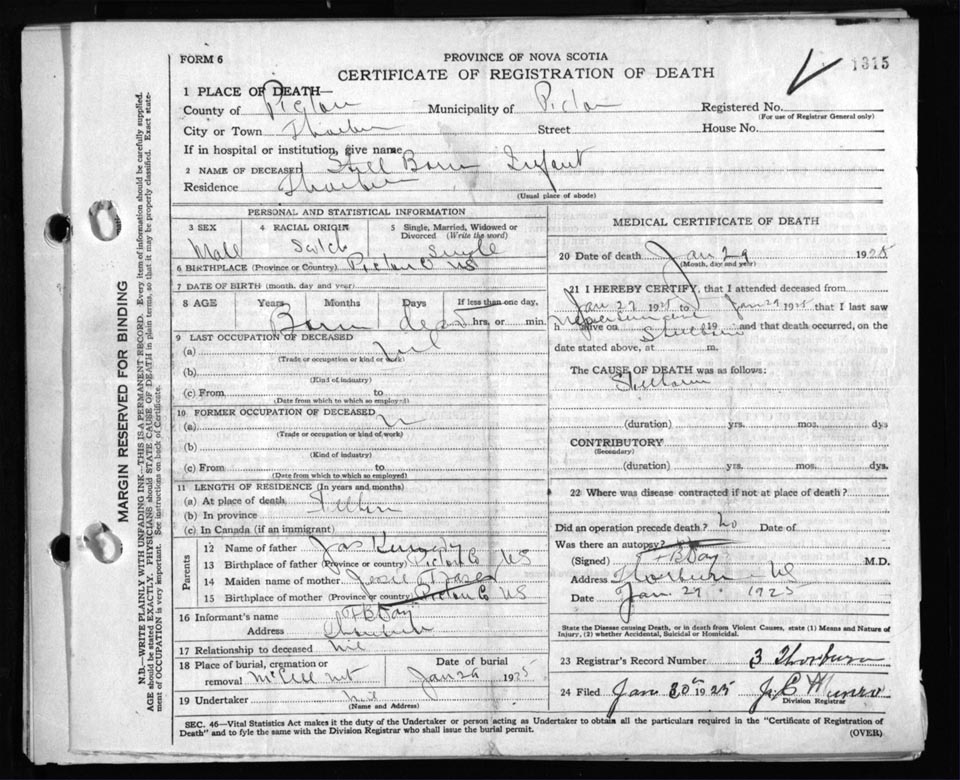 FORM 6
PROVINCE OF NOVA SCOTIA
CERTIFICATE OF REGISTRATION OF DEATH
1315
1 PLACE OF DEATH—
County of Pictou Municipality of Pictou Registered No.
(For use of Registrar General only)
City or Town Thorburn Street House No.
If in hospital or institution, give name
2 NAME OF DECEASED Still Born Infant
Residence Thorburn
(Usual place of abode)
PERSONAL AND STATISTICAL INFORMATION
3 SEX 4 RACIAL ORIGIN 5 Single, Married, Widowed or Divorced (Write the word)
Male Scotch Single
6 BIRTHPLACE (Province or Country) Pictou Co NS
7 DATE OF BIRTH (month, day and year)
8 AGE Years Months Days If less than one day,
Born dead hrs. or min.
9 LAST OCCUPATION OF DECEASED
(a) nil
(Trade or occupation or kind of work)
(b)
(Kind of industry)
(c) From to
(Date from which to which so employed)
10 FORMER OCCUPATION OF DECEASED
(a)
(Trade or occupation or kind of work)
(b)
(Kind of industry)
(c) From to
(Date from which to which so employed)
11 LENGTH OF RESIDENCE (In years and months)
(a) At place of death
(b) In province
(c) In Canada (if an immigrant)
Parents
12 Name of father Jas Kennedy
13 Birthplace of father (Province or country) Pictou Co NS
14 Maiden name of mother Jessie Fraser
15 Birthplace of mother (Province or country) Pictou Co NS
16 Informant's name
Address Thorburn
17 Relationship to deceased nil
18 Place of burial, cremation or removal Date of burial
Jan 29 1925
19 Undertaker nil
(Name and Address)
MEDICAL CERTIFICATE OF DEATH
20 Date of death Jan 29 1925
(Month, day and year)
21 I HEREBY CERTIFY, that I attended deceased from
Jan 29 1925 to Jan 29 1925 that I last saw
h alive on Stillborn 19 and that death occurred, on the
date stated above, at m.
The CAUSE OF DEATH was as follows:
Stillborn
(duration) yrs. mos. dys
CONTRIBUTORY
(Secondary)
(duration) yrs. mos. dys.
22 Where was disease contracted if not at place of death?
Did an operation precede death? no Date of
Was there an autopsy?
(Signed) M.D.
Address Thorburn NS
Date Jan. 29. 1925
State the Disease causing Death, or in death from Violent Causes, state (1) Means and Nature of
Injury, (2) whether Accidental, Suicidal or Homicidal.
23 Registrar's Record Number 3 Thorburn
24 Filed Jan 30th 1925 J. C. Munro
Division Registrar
SEC. 46—Vital Statistics Act makes it the duty of the Undertaker or person acting as Undertaker to obtain all the particulars required in the "Certificate of Registration of
Death" and to fyle the same with the Division Registrar who shall issue the burial permit.
(OVER)
MARGIN RESERVED FOR BINDING
N.B.—WRITE PLAINLY WITH UNFADING INK—THIS IS A PERMANENT RECORD. Every item of information should be carefully supplied.
AGE should be stated EXACTLY. PHYSICIANS should STATE CAUSE OF DEATH in plain terms, so that it may be properly classified. Exact statement of OCCUPATION is very important. See instructions on back of Certificate.